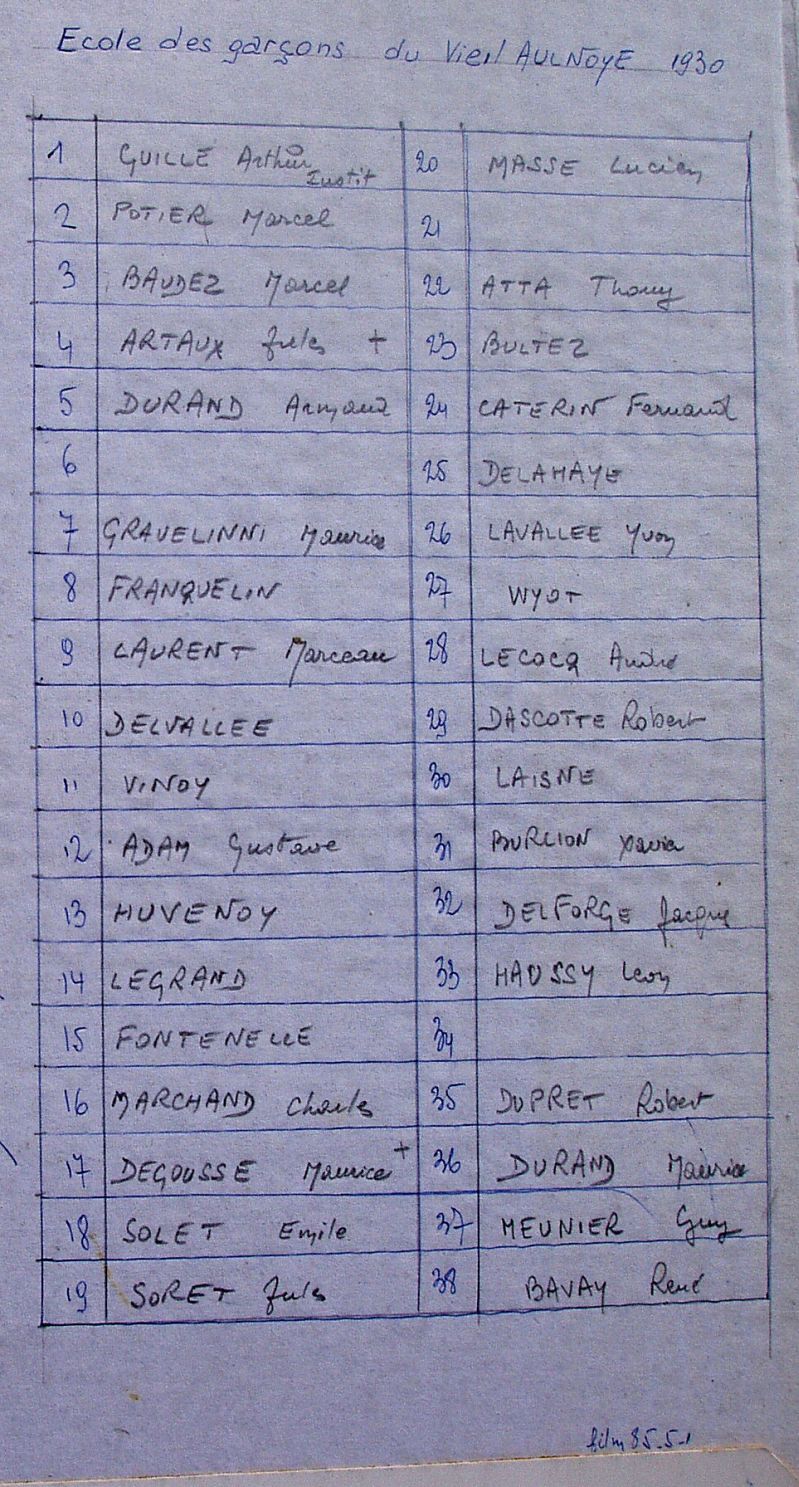 Ecole des garçons du Vieil AULNOYE 1930
1 GUILLE Arthur Instit
2 POTIER Marcel
3 BAUDEZ Marcel
4 ARTAUX Jules +
5 DURAND Armand
6
7 GRAVELINNI Maurice
8 FRANQUELIN
9 LAURENT Marceau
10 DELVALLEE
11 VINOY
12 ADAM Gustave
13 HUVENOY
14 LEGRAND
15 FONTENELLE
16 MARCHAND Charles
17 DEGOUSSE Maurice +
18 SOLET Emile
19 SORET Jules
20 MASSE Lucien
21
22 ATTA Thony
23 BULTEZ
24 CATERIN Fernand
25 DELAHAYE
26 LAVALLEE Yvon
27 WYOT
28 LECOCQ André
29 DASCOTTE Robert
30 LAISNE
31 BURLION Xavier
32 DELFORGE Jacques
33 HAUSSY Leon
34
35 DUPRET Robert
36 DURAND Maurice
37 MEUNIER Guy
38 BAVAY René
film 85-5-1